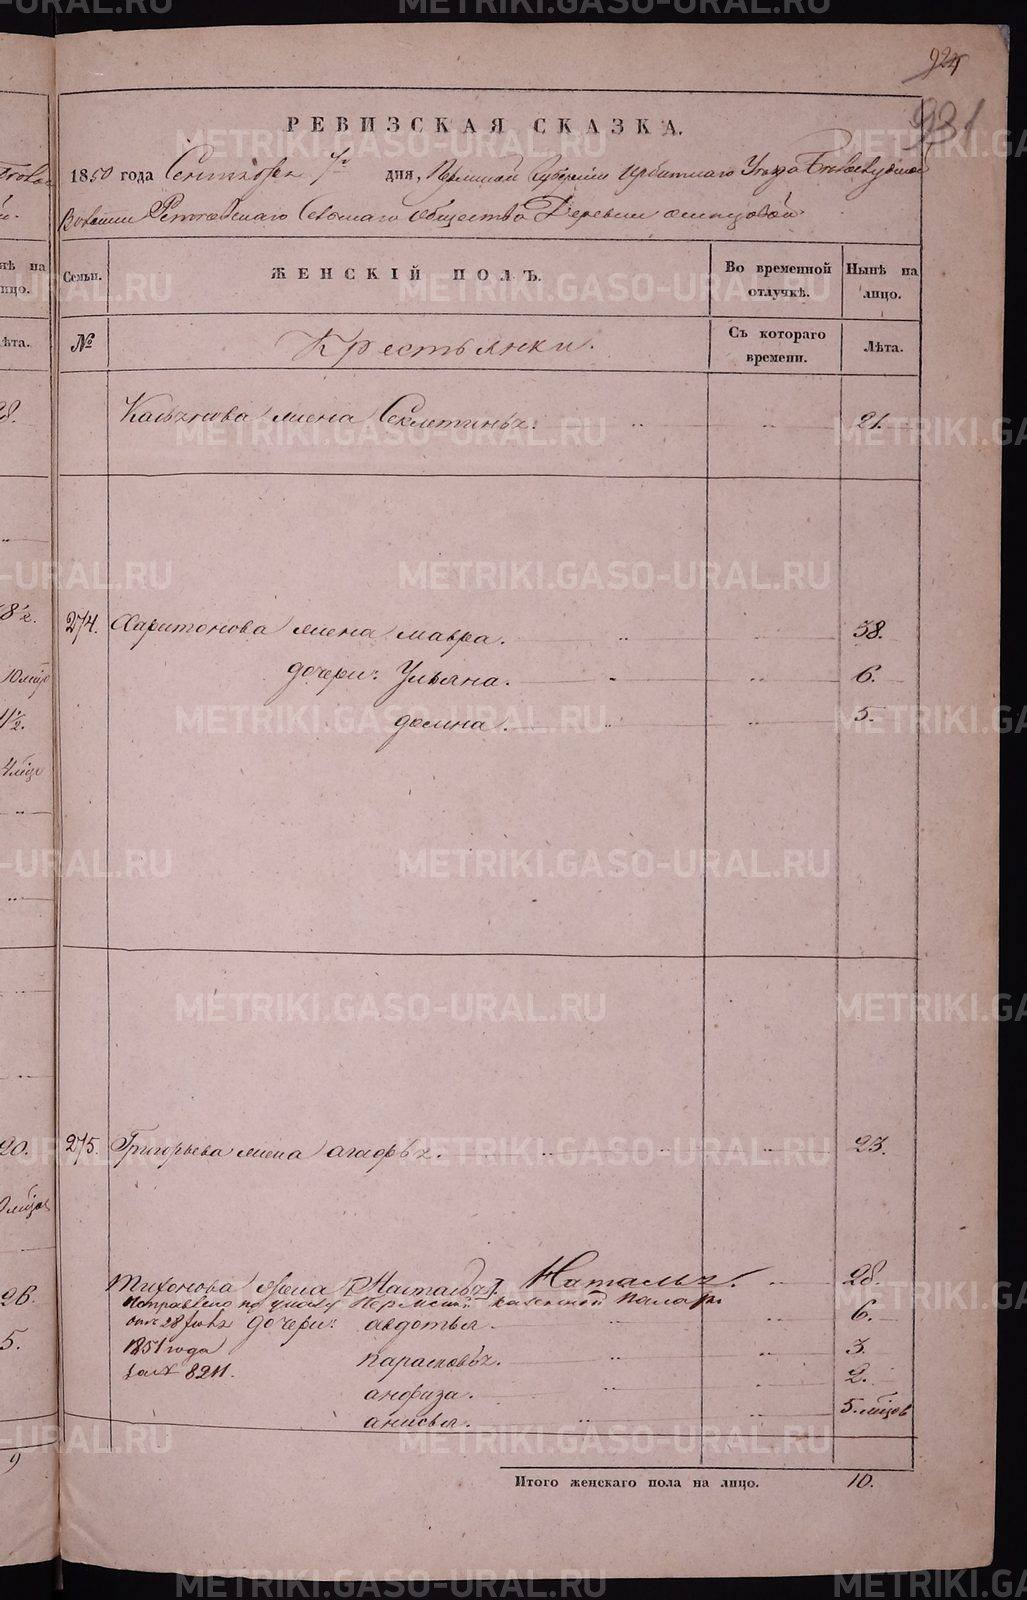 924
931
РЕВИЗСКАЯ СКАЗКА.
1850 года Сентября дня, Пермской Губернии Ирбитскаго Уезда
Волости Сельскаго общества Деревни
Семьи. ЖЕНСКІЙ ПОЛЪ. Во временной отлучкѣ. Нынѣ на лицо.
№ Крестьянки. Съ котораго времени. Лѣта.
жена Секлетинья. 21.
274. Харитонова жена мавра. 38.
дочери: Ульяна. 6.
домна. 5.
275. Григорьева жена агафья. 23.
Тихонова жена Наталья. 28.
Исправлено по указу Пермской казенной палаты
отъ 28 дочери: авдотья. 6.
1851 года
парасковья. 3.
8211.
анфиза. 2.
анисья. 5. мцов
Итого женскаго пола на лицо. 10.
28.
20.
26.
5.
9
METRIKI.GASO-URAL.RU